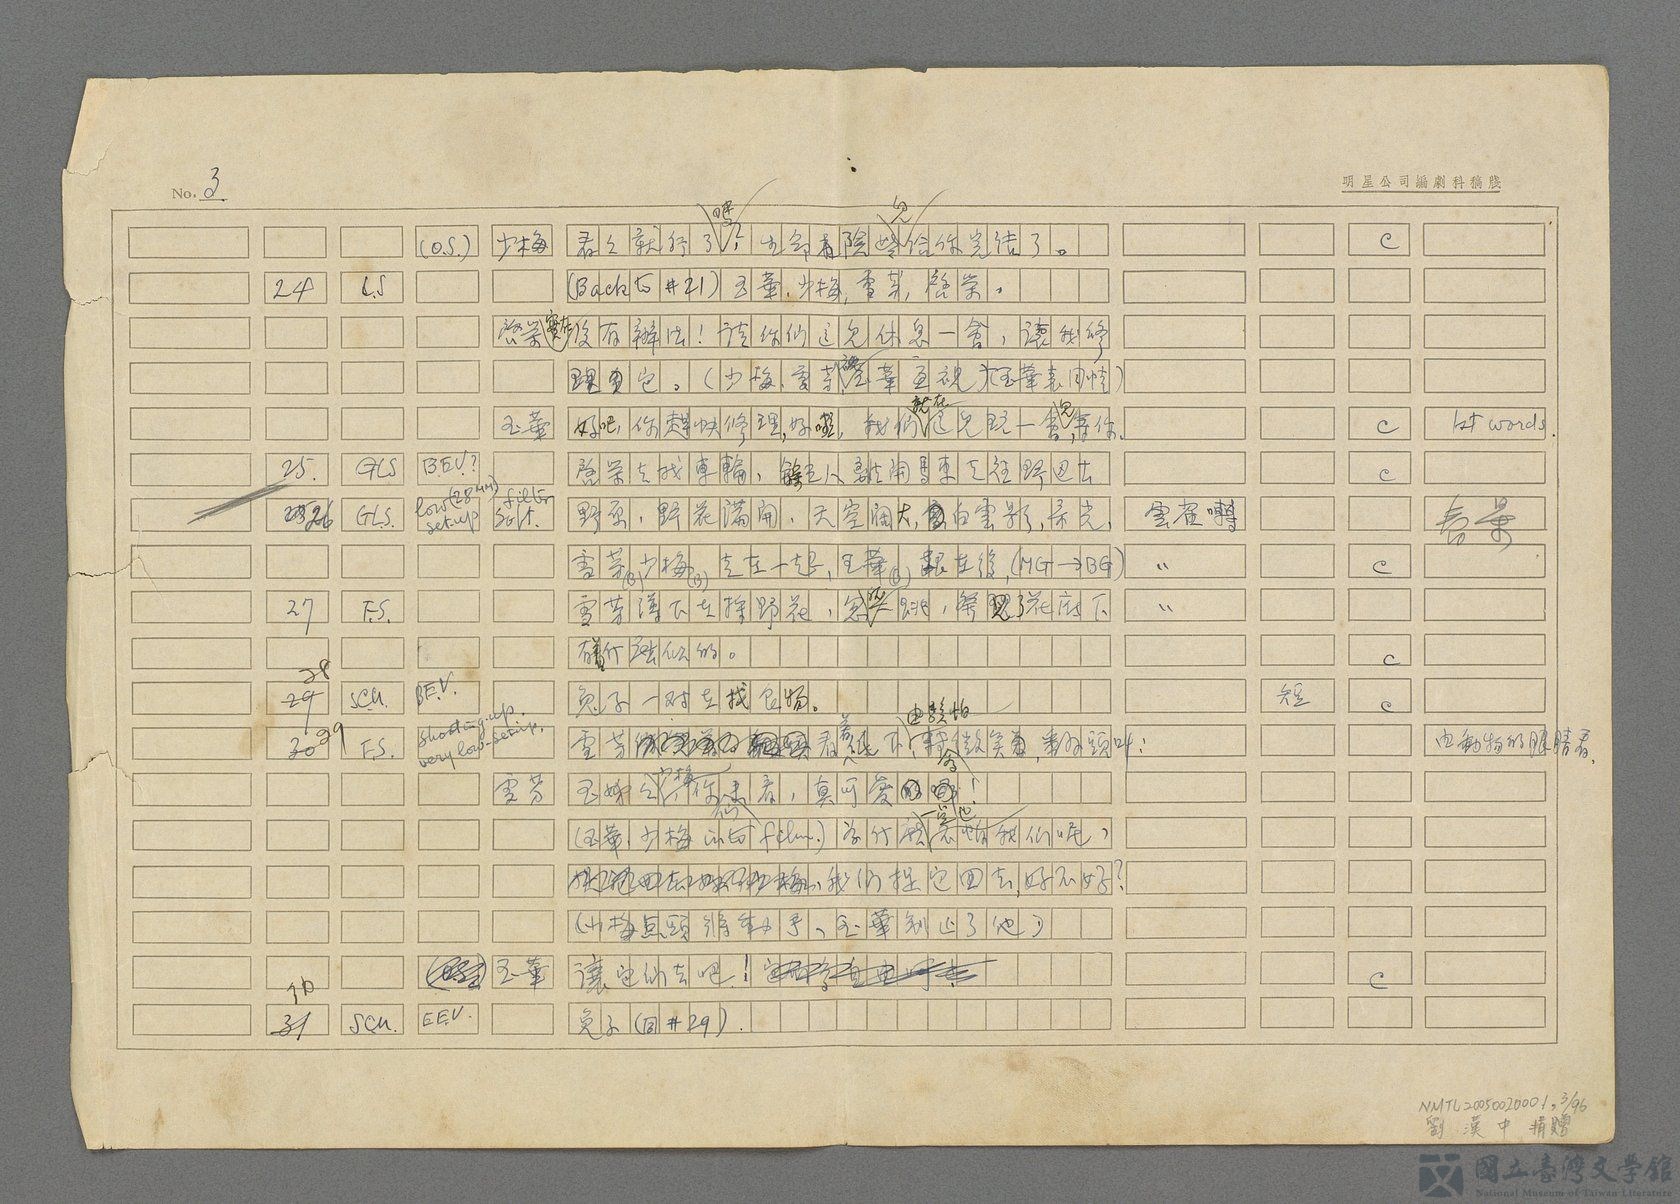 No. 3
明星公司編劇科稿牋
(O.S.) 少梅 看看就行了嗎! 也 給你完結了。 C
24 L.S (Back to #21) 玉華,少梅,雪芬,啓棠。
啓棠 實在沒有辦法!請你們這兒休息一會,讓我修
理 它。(少梅,雪芬 玉華互視)(玉華表同情)
玉華 好吧,你趕快修理好啦,我們就在這兒玩一會兒,等你。 C last words.
25. GLS B.E.V? 啓棠去找車輪, 離開馬車走往野边去 C
26 G.L.S. low (28MM) set-up filter soft. 野原,野花滿開,天空闊大,白雲影,柔光, 雲雀囀 春景
雪芬(B)少梅(B)走在一起,玉華(B)跟在後,(MG→BG) 〃 C
27 F.S. 雪芬蹲下去採野花,忽然 跳,發現了花底下 〃
有什麼似的。 C
28 29 S.C.U. B.E.V. 兔子一对在找食物。 短 C
30 29 F.S. shooting-up. very low-set-up. 雪芬 看着底下,由驚怕轉微笑, 頭叫: 由動物的眼睛看。
雪芬 玉姊姊,少梅,你們來看,真可愛 !
(玉華,少梅 into film.)為什麼 一定也 怕我們呢,
我們捉它回去,好不好?
(少梅点頭將動手,玉華制止了他)
玉華 讓它们去吧! C
30 31 S.C.U. B.E.V. 兔子(同#29).
NMTL20050020001, 3/96
劉漢中捐贈
國立臺灣文學館
National Museum of Taiwan Literature